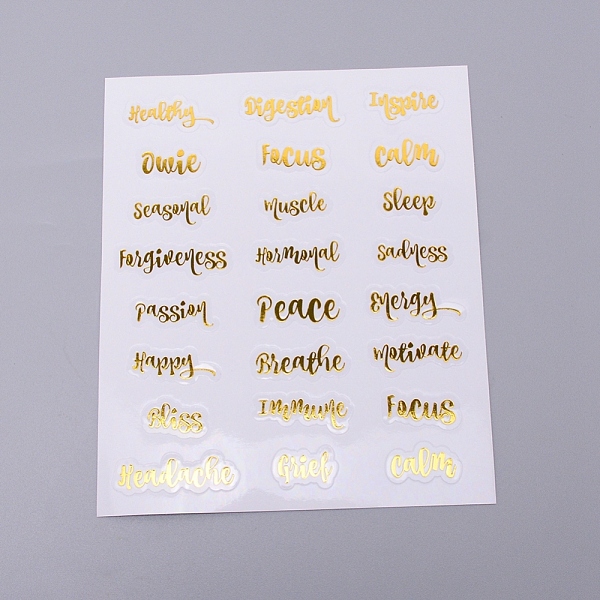 Healthy Digestion Inspire
Owie Focus Calm
Seasonal Muscle Sleep
Forgiveness Hormonal Sadness
Passion Peace Energy
Happy Breathe Motivate
Bliss Immune Focus
Headache Grief Calm